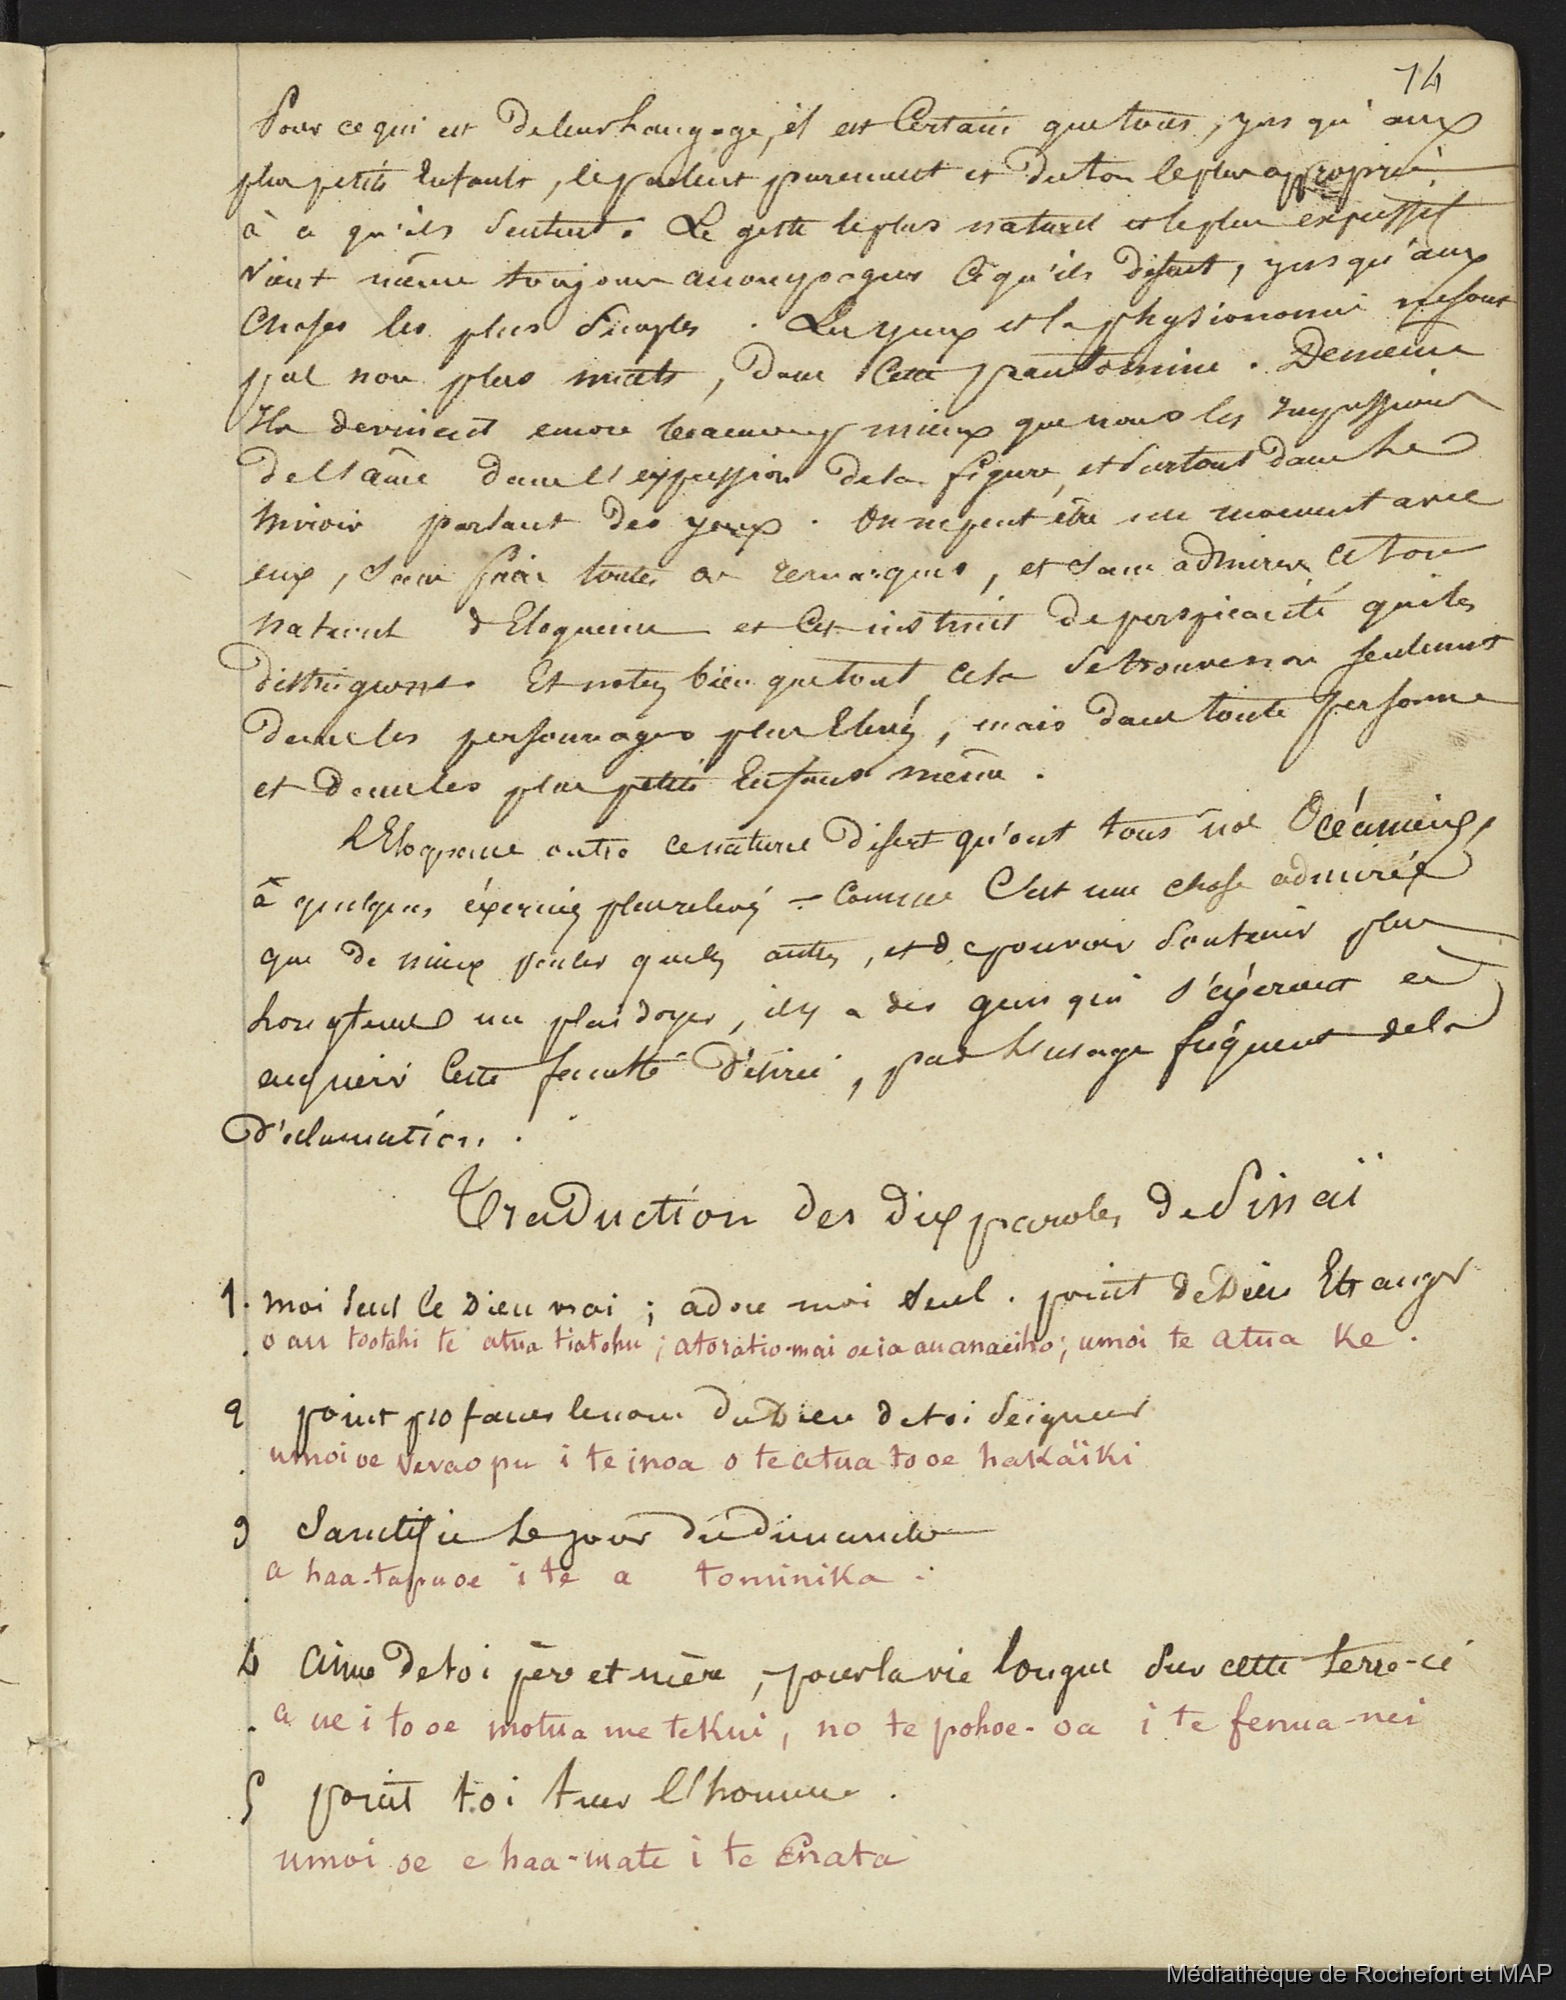 74
Pour ce qui est de leur Langage, il est Certain que tous, jus qu'aux
plus petits Enfants, le parlent purement et du ton le plus approprié
à ce qu'ils sentent. Le geste le plus naturel et le plus expressif
vient même toujours accompagner Ce qu'ils disent, jus qu'aux
Choses les plus simples. Les yeux et la physionomie ne sont
pas non plus muets, dans Cette pantomime. De même
Ils devinent encore beaucoup mieux que nous les Impressions
de l'âme dans l'expression de la figure, et surtout dans Le
Miroir parlant des yeux. On ne peut être un moment avec
eux, sans faire toutes ces remarques, et sans admirer Ce ton
naturel d'Eloquence et Cet instinct de perspicacité qui les
distinguent. Et notez bien que tout cela se trouve non seulement
dans les personnages plus Elevés, mais dans toute personne
et dans les plus petits Enfans même.
L'Eloquence outre ce naturel disert qu'ont tous nos Océaniens,
a quelques éxercices plus relevés - Comme C'est une chose admirée
que de mieux parler que les autres, et de pouvoir soutenir plus
Longtems un plaidoyer, il y a des gens qui s'éxercent et
acquièrir Cette faculté désirée, par L'usage fréquent de la
Déclamation.
Traduction des dix paroles de Sinaï
1. moi seul le Dieu vrai ; adore moi seul. point de Dieu Etranger
o au tootahi te atua tiatohu ; atoratio-mai oe ia au anaeiho ; umoi te atua ke.
2 point profaner le nom du Dieu de toi Seigneur
umoi oe vevao pu i te inoa o te atua to oe hakaïki
3 Sanctifie Le jour du dimanche
a haa-tapu oe i te a tominika.
4 Aime de toi père et mère, pour la vie longue sur cette terre-ci
a ue i to oe motua me te kui, no te pohoe-oa i te fenua-nei
5 point toi tuer l'homme.
umoi oe e haa-mate i te Enata
Médiathèque de Rochefort et MAP